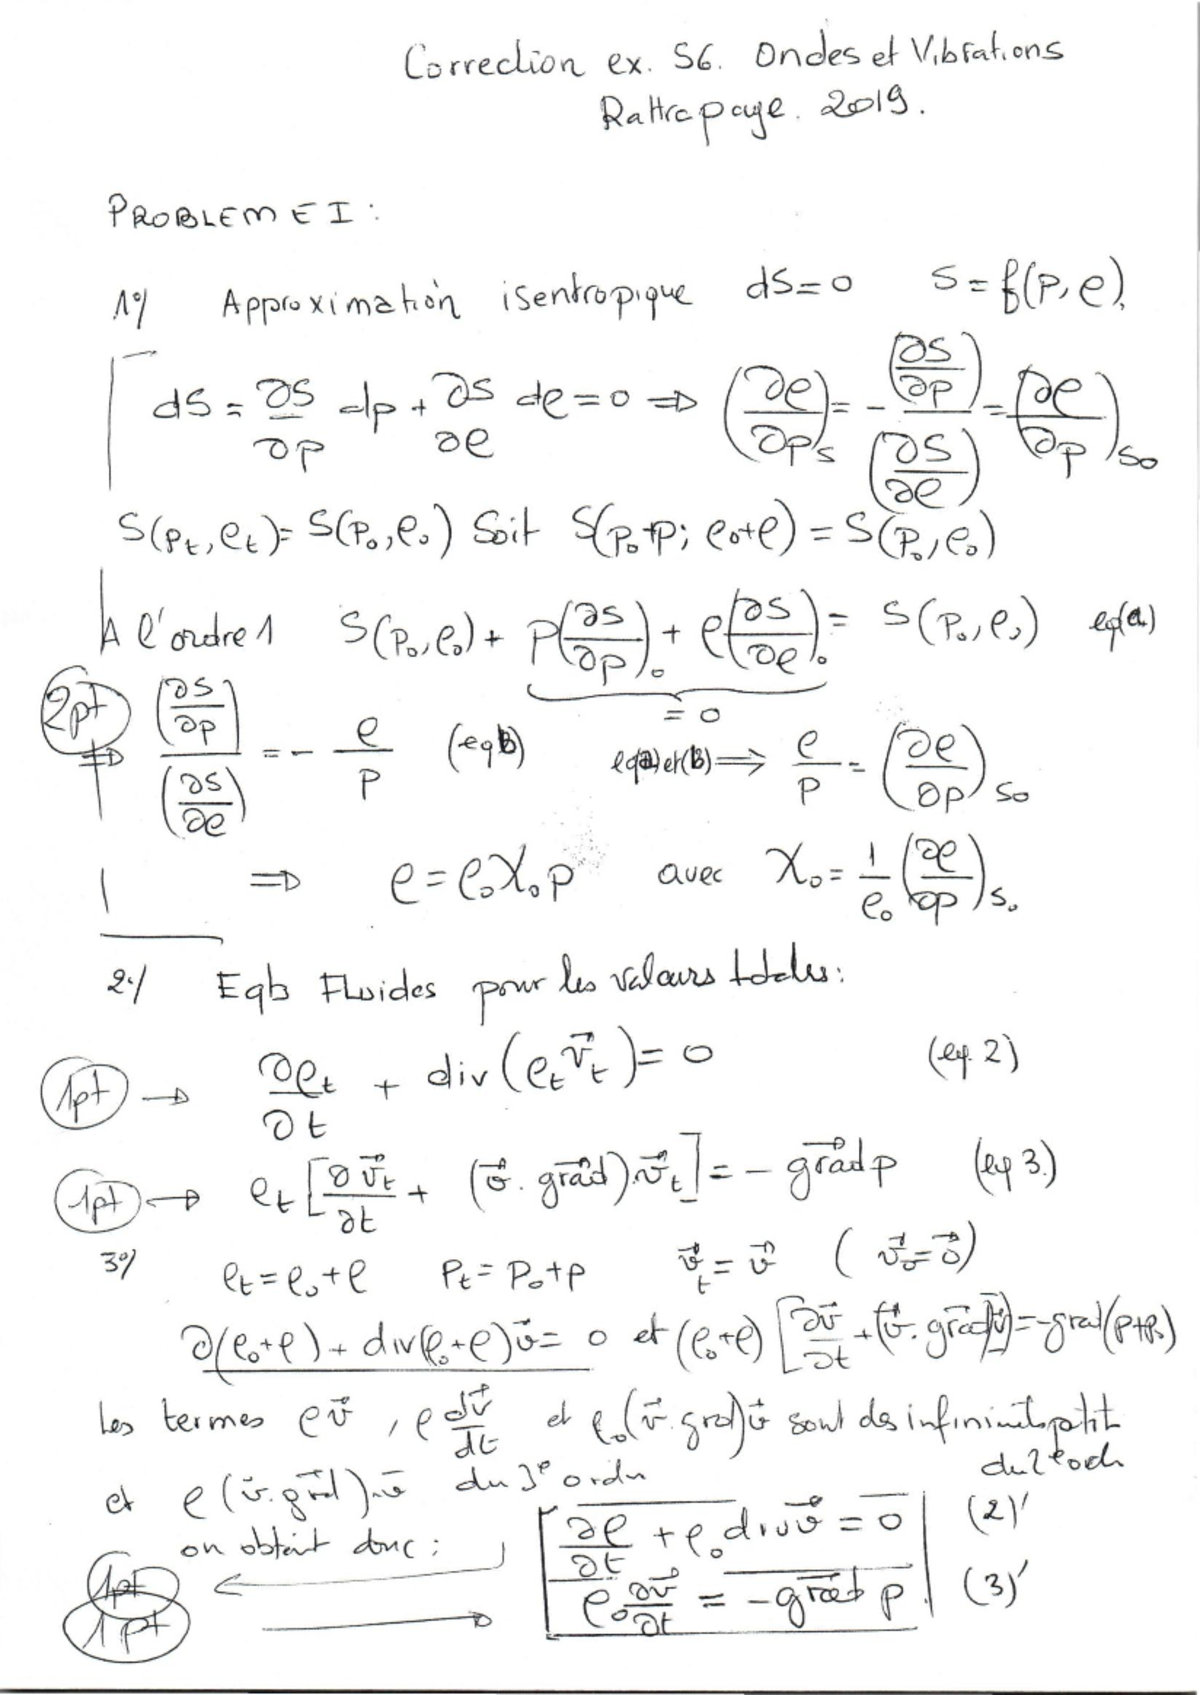 Correction ex. S6. Ondes et Vibrations
Rattrapage. 2019.
PROBLEME I :
1°/ Approximation isentropique dS=0 S=f(p,ρ),
dS = ∂S/∂p dp + ∂S/∂ρ dρ = 0 ⇒ (∂ρ/∂p)_S = - (∂S/∂p)/(∂S/∂ρ) = (∂ρ/∂p)_S₀
S(p_t,ρ_t) = S(p₀,ρ₀) Soit S(p₀+p; ρ₀+ρ) = S(p₀,ρ₀)
A l'ordre 1 S(p₀,ρ₀) + p(∂S/∂p)₀ + ρ(∂S/∂ρ)₀ = S(p₀,ρ₀) eq(a)
= 0
2pt ⇒ (∂S/∂p)/(∂S/∂ρ) = - ρ/p (eq b) eq(a) et (b) ⇒ ρ/p = (∂ρ/∂p)_S₀
⇒ ρ = ρ₀χ₀p avec χ₀ = 1/ρ₀ (∂ρ/∂p)_S₀
2°/ Eqts Fluides pour les valeurs totales :
1pt → ∂ρ_t/∂t + div(ρ_t v⃗_t) = 0 (eq. 2)
1pt → ρ_t [∂v⃗_t/∂t + (v⃗. grad⃗).v⃗_t] = - grad⃗ p (eq 3.)
3°/ ρ_t = ρ₀+ρ P_t = P₀+p v⃗_t = v⃗ ( v⃗₀=0⃗)
∂(ρ₀+ρ) + div(ρ₀+ρ)v⃗ = 0 et (ρ₀+ρ) [∂v⃗/∂t + (v⃗. grad⃗)v⃗] = -grad(p+p₀)
Les termes ρv⃗ , ρ dv⃗/dt et ρ₀(v⃗. grad)v⃗ sont des infiniments petit
du 2e ordr
et ρ(v⃗. grad⃗).v⃗ du 3e ordre
on obtient donc :
1pt ∂ρ/∂t + ρ₀ div v⃗ = 0 (2)'
1pt ρ₀ ∂v⃗/∂t = - grad⃗ p (3)'